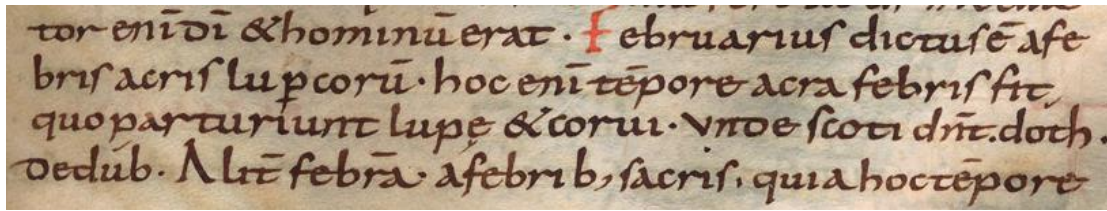 tor enī dī & hominū erat · Februarius dictus ē a fe
bris acris luꝑcorū · hoc enī tēpore acra febris fit,
quo parturiunt lupę & corui · Vnde scoti dnt̄. doth.
dedub́ · Alit̄ febrā · a febrib; sacris, quia hoc tēpore